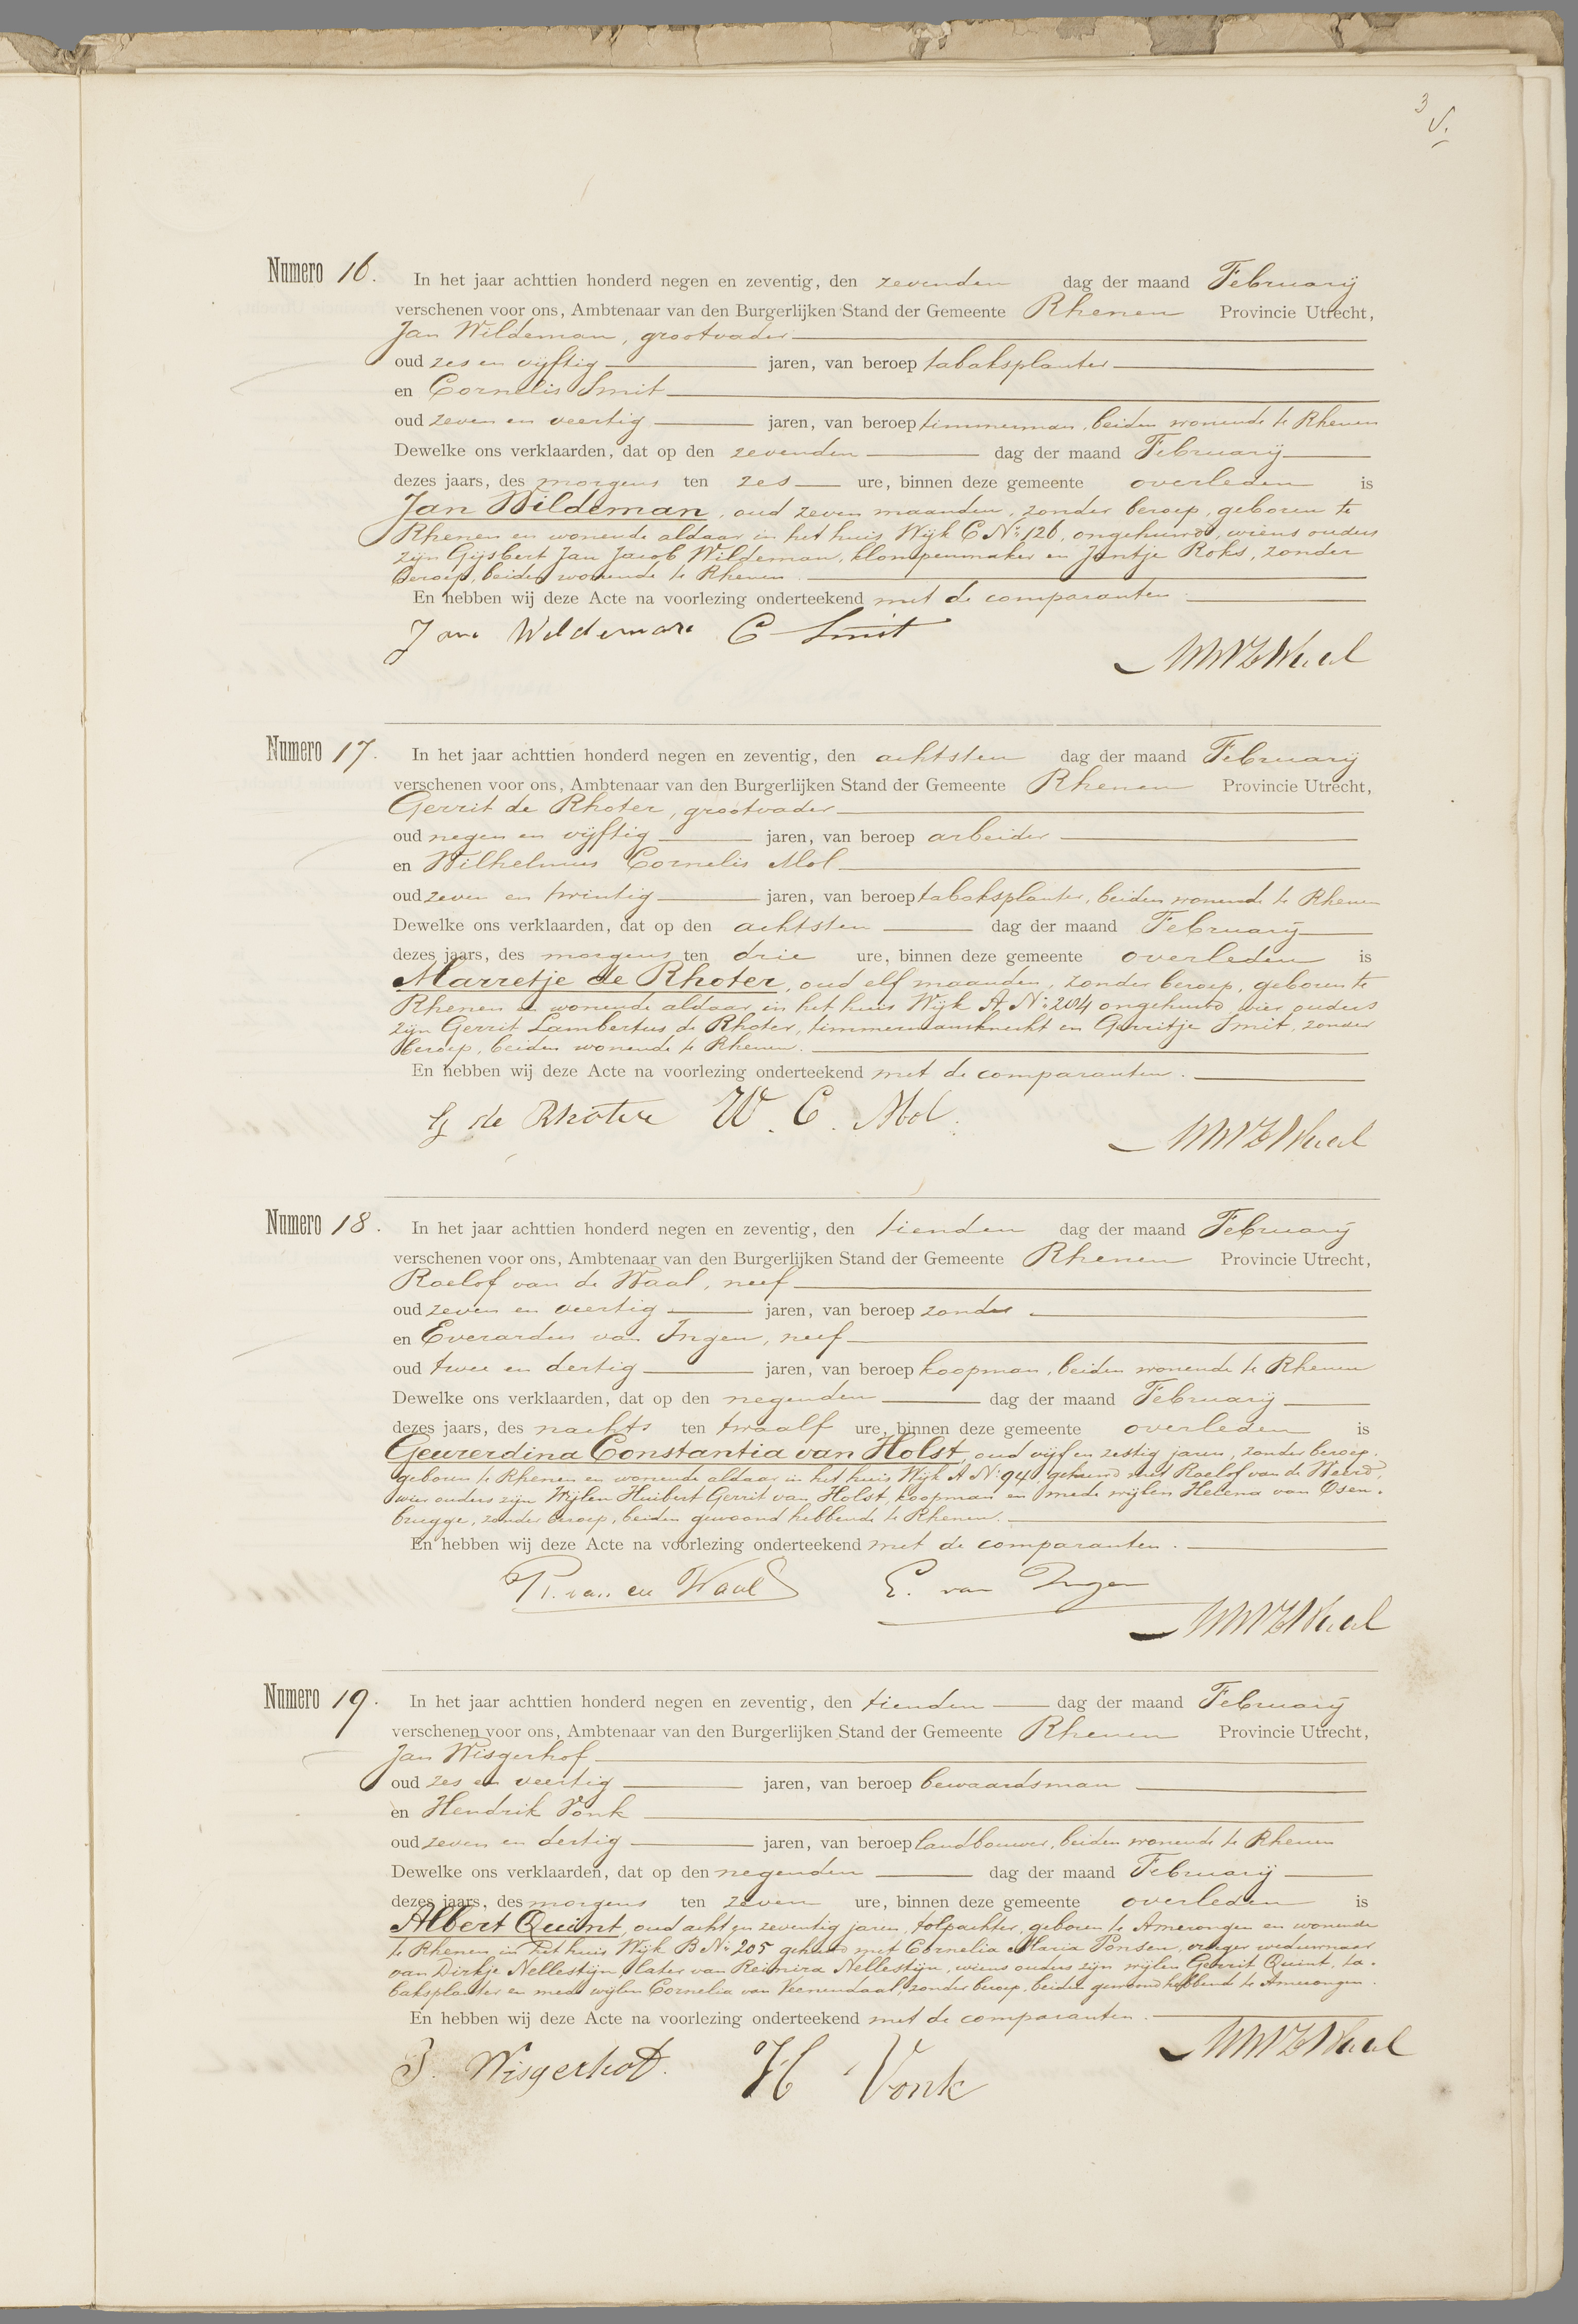 3
V.
Numero 16. In het jaar achttien honderd negen en zeventig, den zevenden dag der maand Februarij
verschenen voor ons, Ambtenaar van den Burgerlijken Stand der Gemeente Rhenen Provincie Utrecht,
Jan Wildeman, grootvader
oud zes en vijftig jaren, van beroep tabaksplanter
en Cornelis Smit
oud zeven en veertig jaren, van beroep timmerman, beiden wonende te Rhenen
Dewelke ons verklaarden, dat op den zevenden dag der maand Februarij
dezes jaars, des morgens ten zes ure, binnen deze gemeente overleden is
Jan Wildeman, oud zeven maanden, zonder beroep, geboren te
Rhenen en wonende aldaar in het huis Wijk C No: 126, ongehuwd, wiens ouders
zijn Gijsbert Jan Jacob Wildeman, klompenmaker en Jantje Roks, zonder
beroep, beiden wonende te Rhenen.
En hebben wij deze Acte na voorlezing onderteekend met de comparanten.
Jan Wildeman C Smit
Numero 17. In het jaar achttien honderd negen en zeventig, den achtsten dag der maand Februarij
verschenen voor ons, Ambtenaar van den Burgerlijken Stand der Gemeente Rhenen Provincie Utrecht,
Gerrit de Rhoter, grootvader
oud negen en vijftig jaren, van beroep arbeider
en Wilhelmus Cornelis Mol
oud zeven en twintig jaren, van beroep tabaksplanter, beiden wonende te Rhenen
Dewelke ons verklaarden, dat op den achtsten dag der maand Februarij
dezes jaars, des morgens ten drie ure, binnen deze gemeente overleden is
Marretje de Rhoter, oud elf maanden, zonder beroep, geboren te
Rhenen en wonende aldaar in het huis Wijk A No: 204 ongehuwd, wier ouders
zijn Gerrit Lambertus de Rhoter, timmermansknecht en Gerritje Smit, zonder
beroep, beiden wonende te Rhenen.
En hebben wij deze Acte na voorlezing onderteekend met de comparanten.
G de Rhoter W. C. Mol
Numero 18. In het jaar achttien honderd negen en zeventig, den tienden dag der maand Februarij
verschenen voor ons, Ambtenaar van den Burgerlijken Stand der Gemeente Rhenen Provincie Utrecht,
Roelof van de Waal, neef
oud zeven en veertig jaren, van beroep zonder
en Everardus van Ingen, neef
oud twee en dertig jaren, van beroep koopman, beiden wonende te Rhenen
Dewelke ons verklaarden, dat op den negenden dag der maand Februarij
dezes jaars, des nachts ten twaalf ure, binnen deze gemeente overleden is
Geurerdina Constantia van Holst, oud vijf en zestig jaren, zonder beroep,
geboren te Rhenen en wonende aldaar in het huis Wijk A No: 94, gehuwd met Roelof van de Weerd,
wier ouders zijn Wijlen Huibert Gerrit van Holst, koopman en mede wijlen Helena van Osen-
brugge, zonder beroep, beiden gewoond hebbende te Rhenen.
En hebben wij deze Acte na voorlezing onderteekend met de comparanten.
R. van de Waal E. van Ingen
Numero 19. In het jaar achttien honderd negen en zeventig, den tienden dag der maand Februarij
verschenen voor ons, Ambtenaar van den Burgerlijken Stand der Gemeente Rhenen Provincie Utrecht,
Jan Wisgerhof
oud zes en veertig jaren, van beroep bewaardsman
en Hendrik Vonk
oud zeven en dertig jaren, van beroep landbouwer, beiden wonende te Rhenen
Dewelke ons verklaarden, dat op den negenden dag der maand Februarij
dezes jaars, des morgens ten zeven ure, binnen deze gemeente overleden is
Albert Quint, oud acht en zeventig jaren, tolpachter, geboren te Amerongen en wonende
te Rhenen in het huis Wijk B No: 205 gehuwd met Cornelia Maria Ponsen, vroeger weduwnaar
van Dirkje Nellestijn, later van Reinira Nellestijn, wiens ouders zijn wijlen Gerrit Quint, ta-
baksplanter en mede wijlen Cornelia van Veenendaal, zonder beroep, beiden gewoond hebbende te Amerongen.
En hebben wij deze Acte na voorlezing onderteekend met de comparanten.
J. Wisgerhof. H Vonk